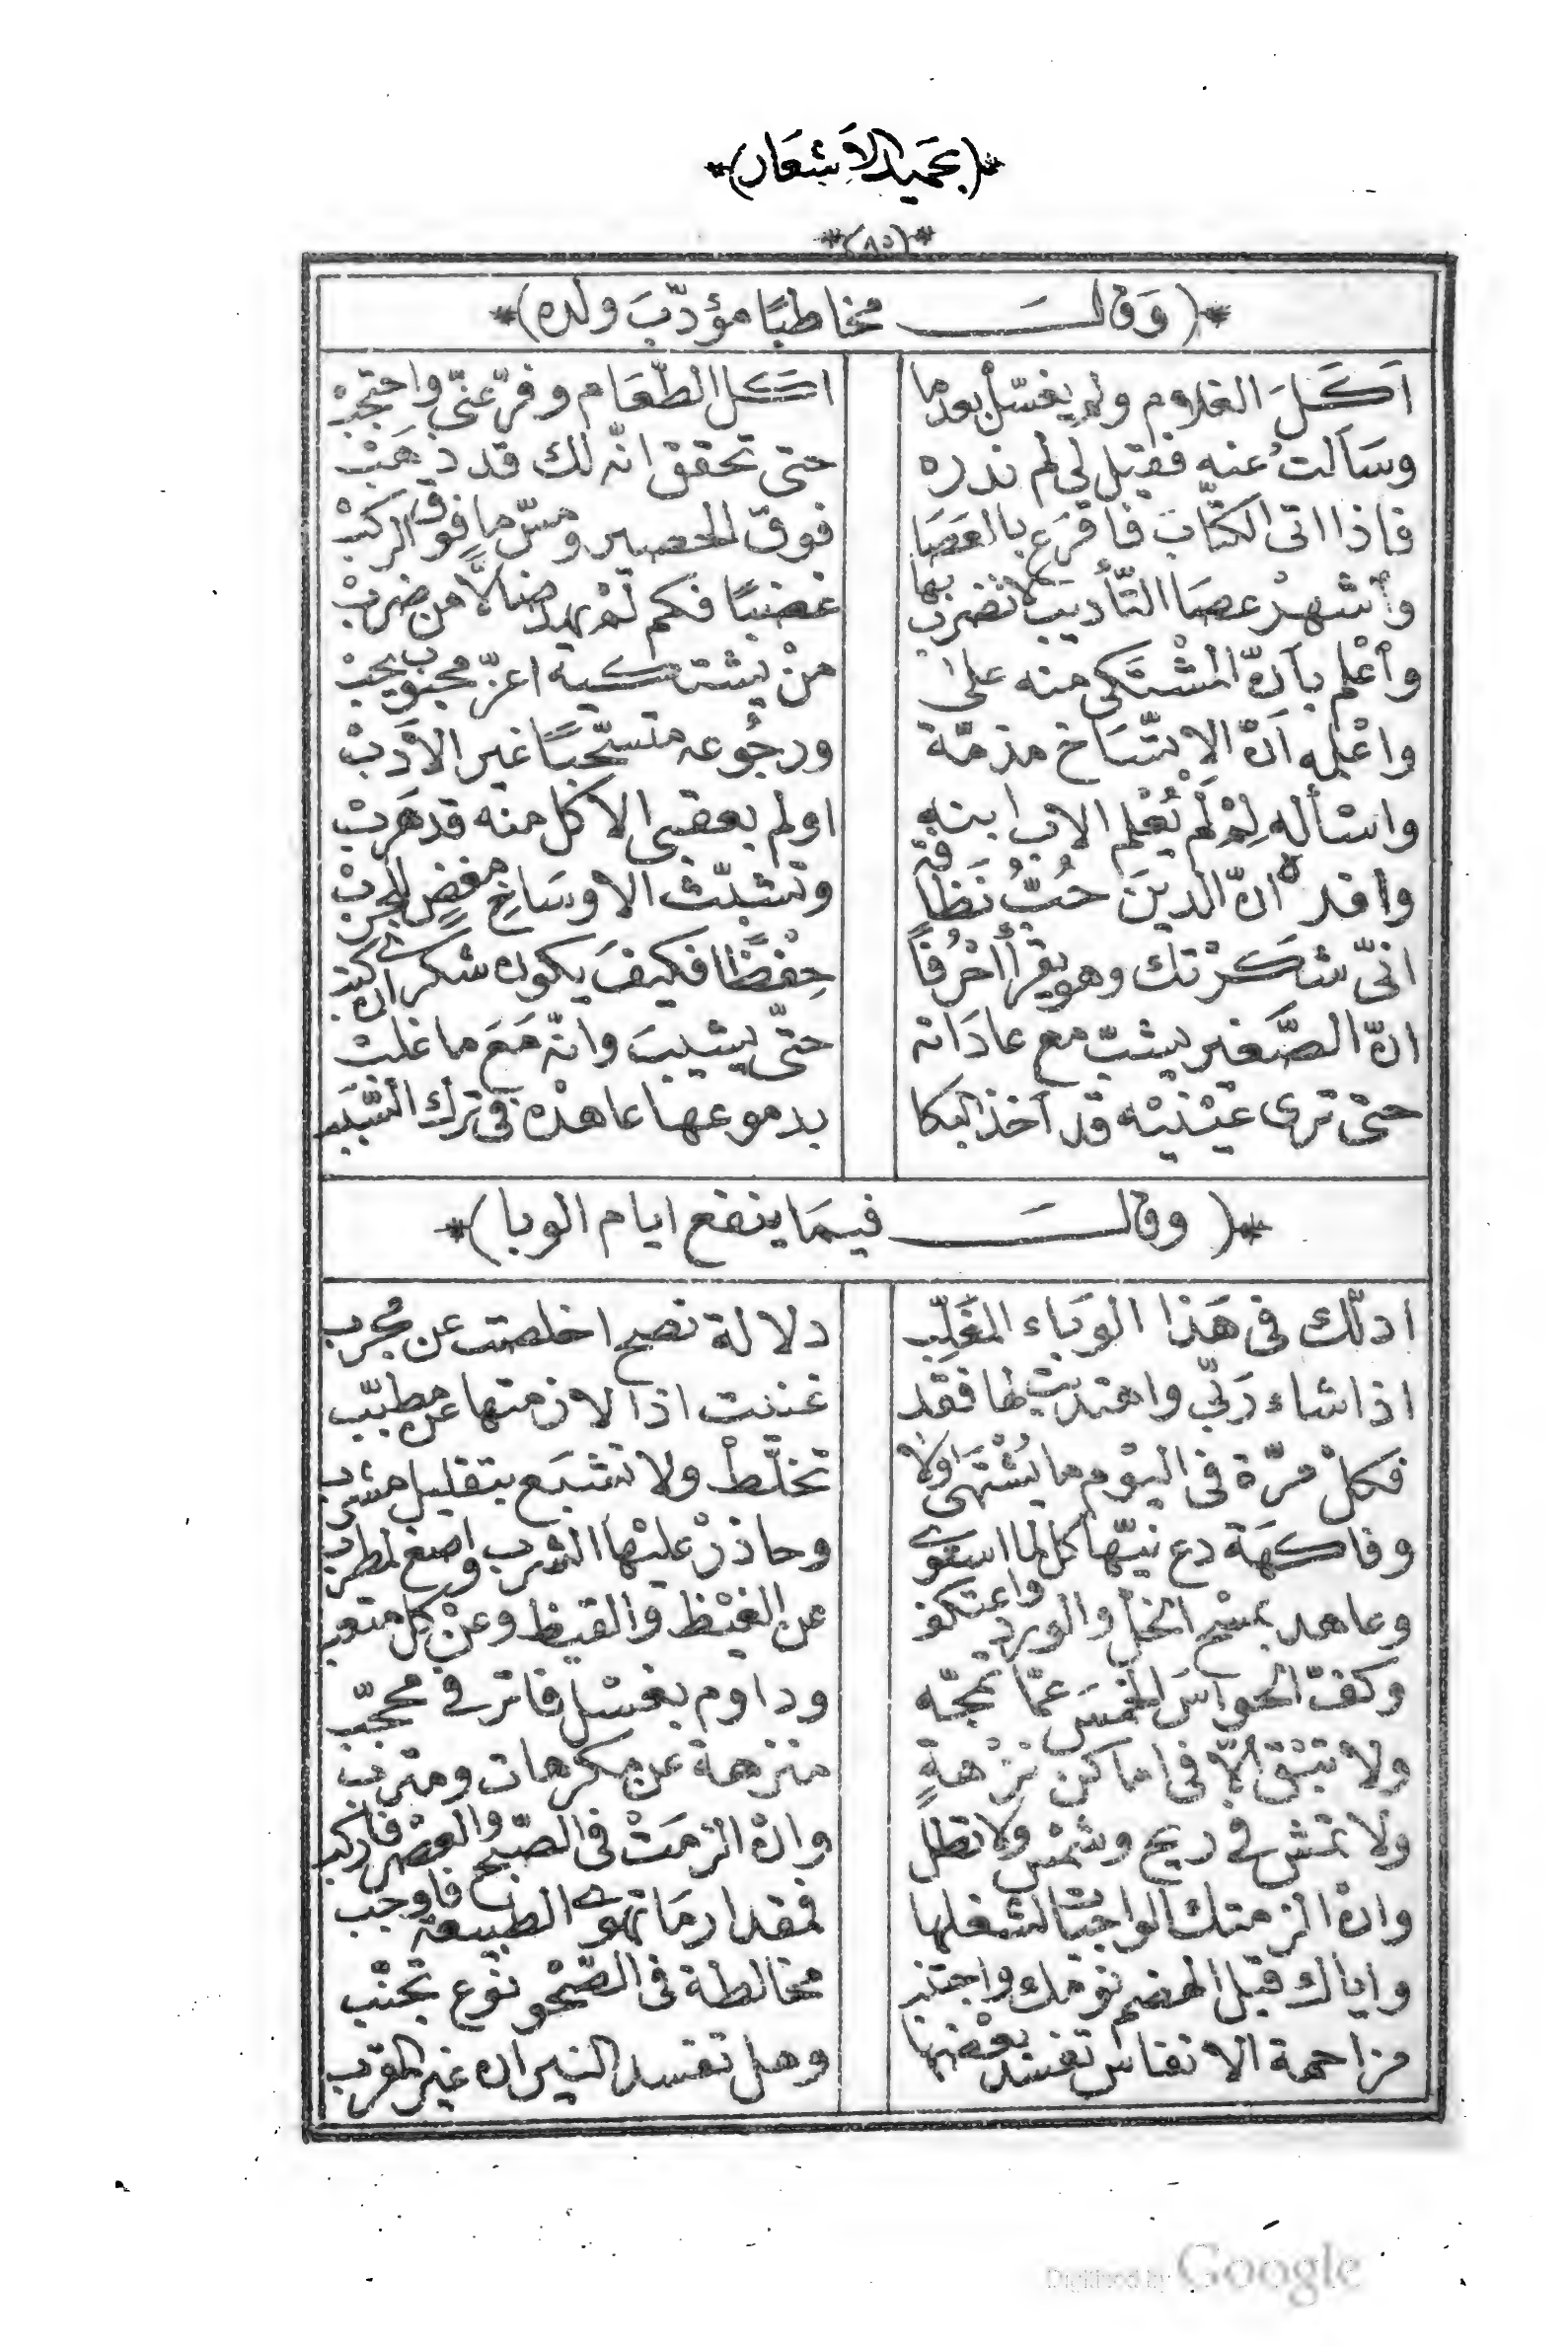 *(بحميد الأشعار)*
*(٨٥)*
*(وَقالَ مخاطبًا مؤدّبَ ولده)*
اَكَلَ الغلام ولم يغسّل بعد ما اكل الطّعَام وفرّ عنّي واحتجبْ
وسَالتُ عنه فقيل لي لم ندره حتى تحقق انّه لك قد ذهَبْ
فاذا اتى الكتّابَ فاقرَع بالعَصَا فوق الحصير ومسّ ما فوق الركبْ
وأشهرْ عصَا التّأديب لا تضرب بها غضبًا فكم لَمْ يهد ضالًّا من ضربْ
وأعْلم بأنّ المشْتَكى منه على منْ يشتكيه اعزّ محبوب يحبْ
واعْلمه اَنّ الاتّسَاخ مذمّة ورجُوعه متسحّبًا غير الأدَبْ
واسْأله لِمْ لَمْ يُعْلم الاب ابنه اولم بعقبى الاكل منه قد هَربْ
وافده انّ الدينَ حُبُّ نَظافة وتشبّث الاوسَاخِ مفضٍ للجربْ
انّى شكرْتك وهو يقرأ أحْرُفًا حِفْظًا فكيفَ يكون شكرى ان كتبْ
انّ الصَّغير يشبّ مع عادَاته حتّى يشيبَ وانّه مَعَ ما غلبْ
حتى ترى عَيْنيْه قد اَخذ البكا بدموعها عاهدْه فى ترك الشَّغب
*(وقالَ فيمَا ينفع ايام الوبا)*
ادلّك فى هَذا الوَباء المغَلِّب دلالة نصح اخلصت عن مجرب
اذا شاء رَبّي واهتديت لها فقد غنيت اذا لازمتها عن مطبّب
فكلْ مرّة فى اليوْم ما يُشْتهَى ولا تخلّطْ ولا تشبَع بتقليل مشرب
وفاكهَة دع نيّها كل لما استوى وحاذرْ عليْها الشرب واصغ لمطرب
وعاهد بمسْح الخلّ والورد واعتكف عن الغيْظ والقيظ وعنْ كل متعب
وكفّ الحوَاسَ الخمسَ عمّا تمجّه وداوم بغسْل فاتر فى محجّب
ولا تبْق الاّ فى اماكن نزْهةٍ منزهة عن مكرهات ومترب
ولا تمش في ريح وشمْس ولا تطل وانْ التزمَتْ فى الصّبح والعصْر فاركب
وانْ الزمتك الواجبات لشغلها فمقدار مَا تهوى الطبيعة فاوجب
واياك قبل الهضم نومك واجتنب مخالطة فى الصّحْو نوع تجنّب
مزاحمة الانفاس تفسد بعْضها وهل تفسد النيران غير المقرب
Digitized by Google